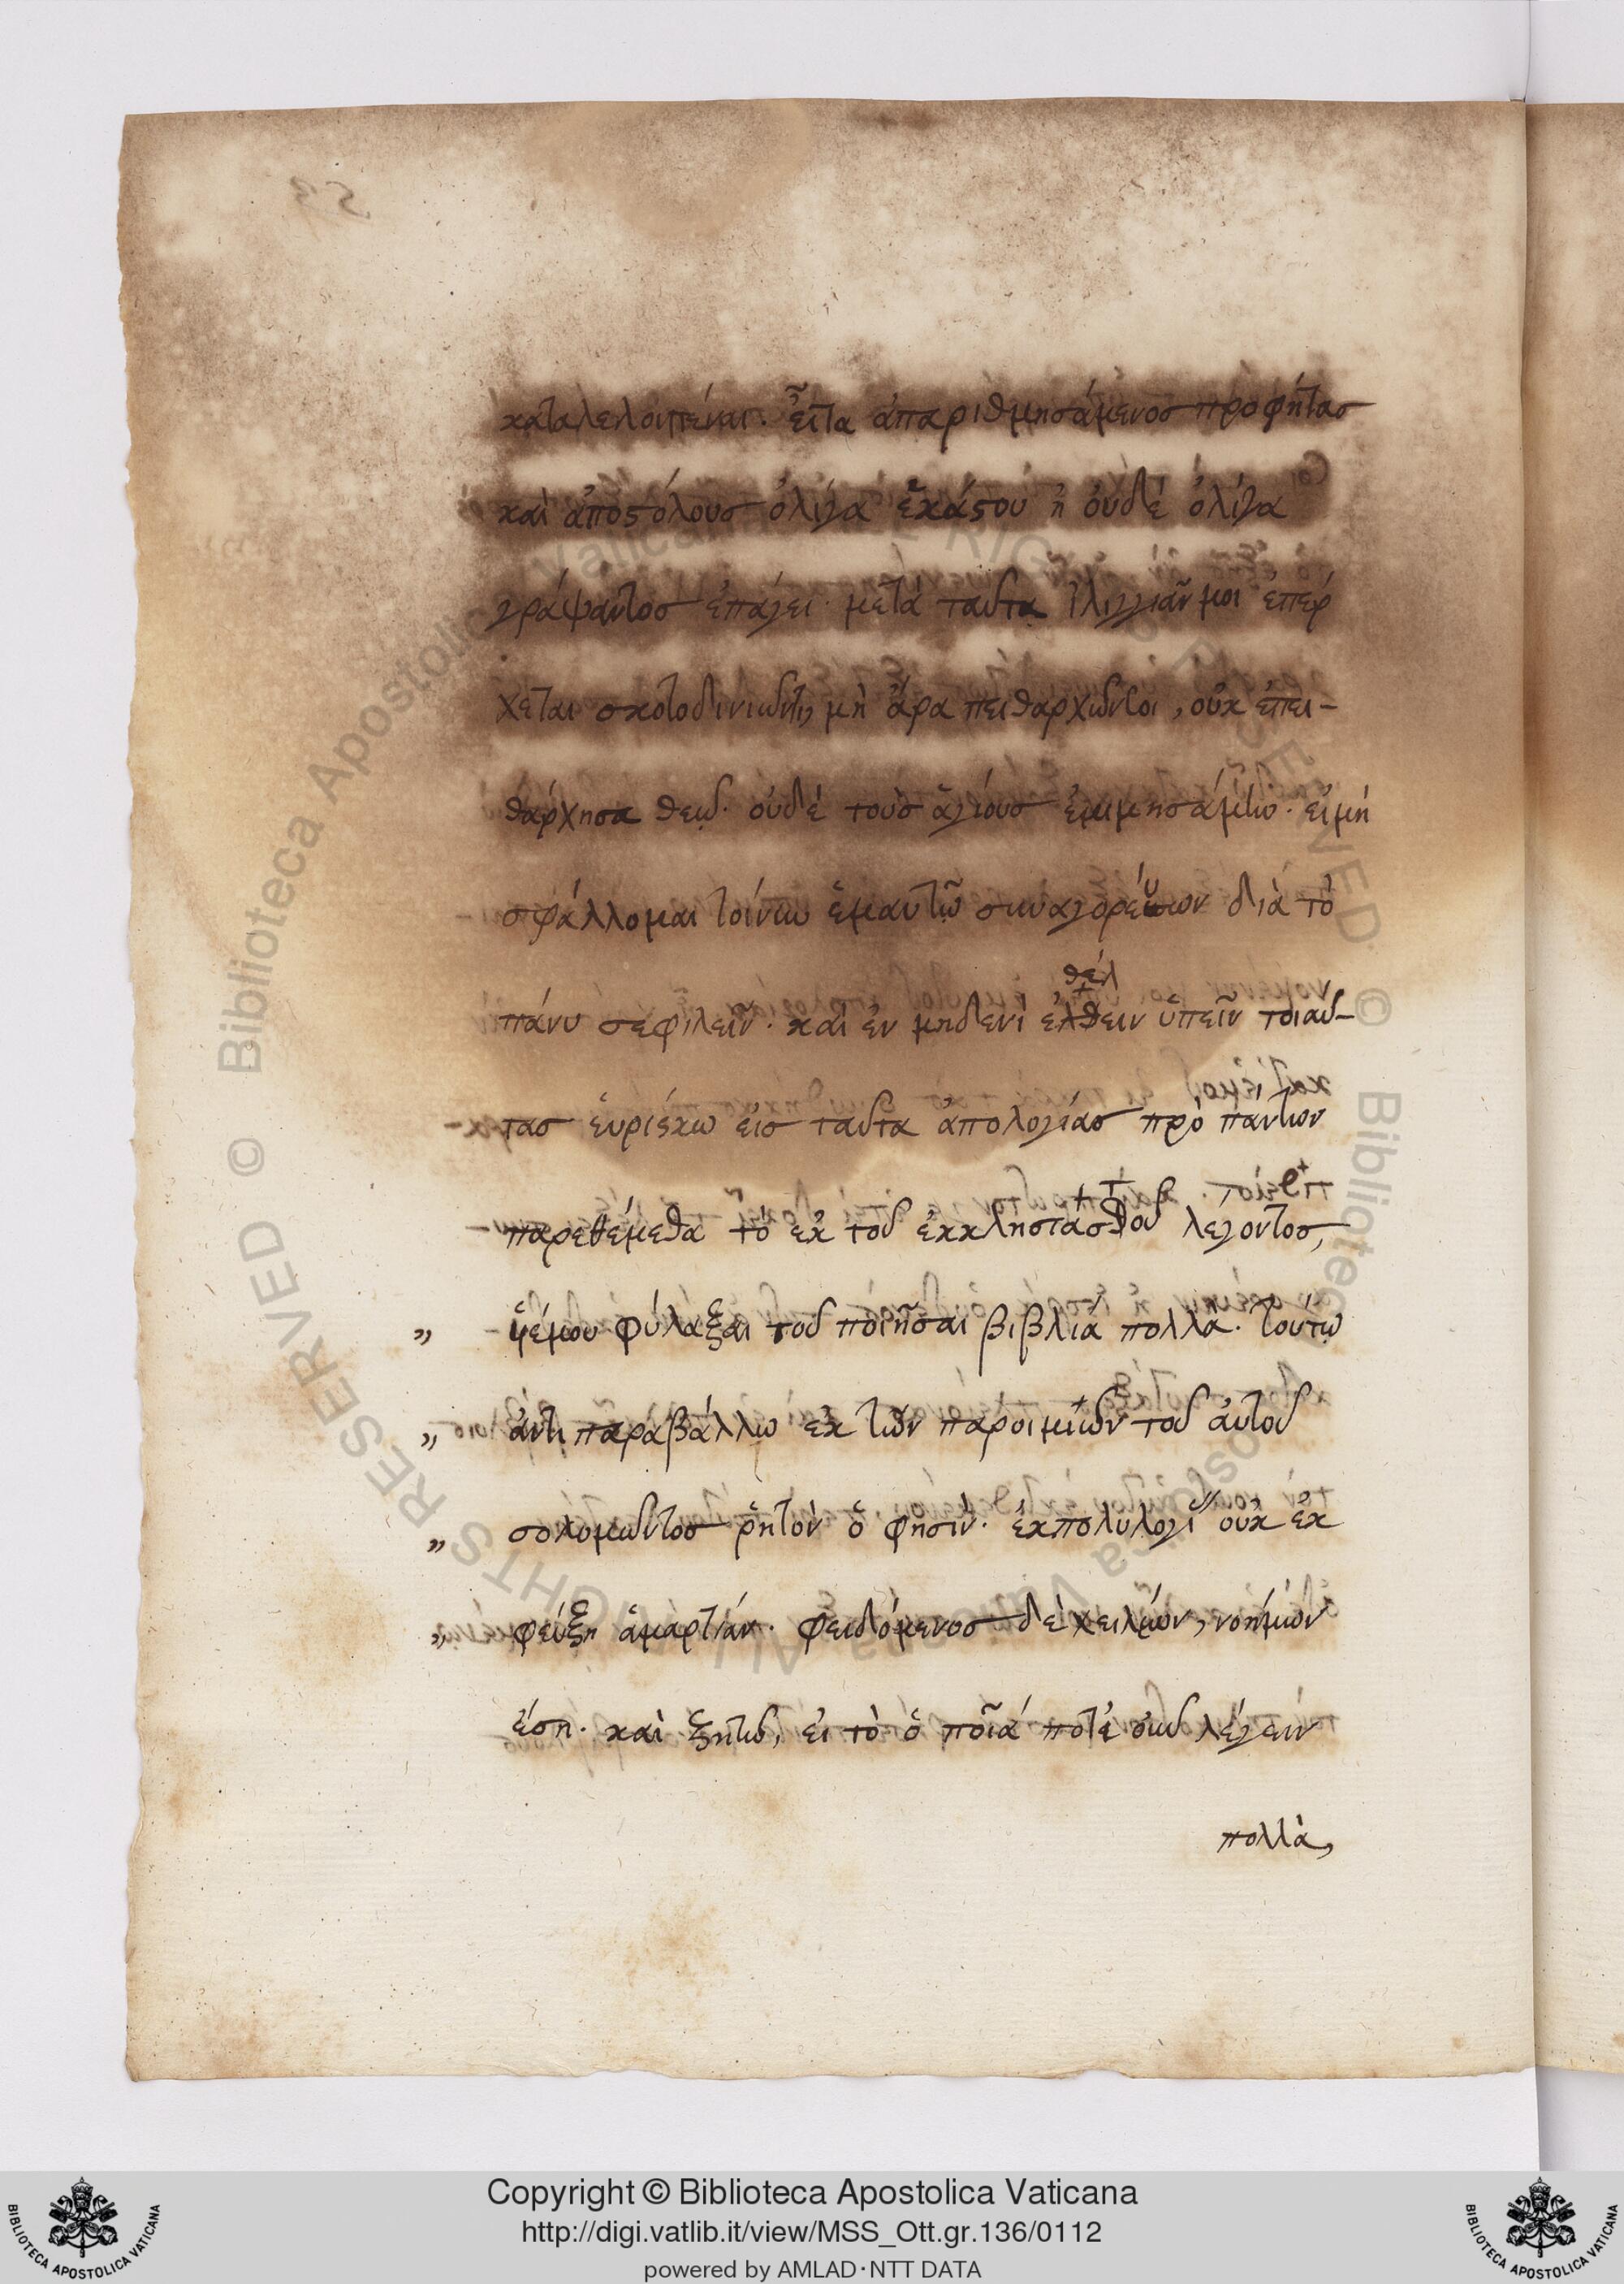 καταλελοιπέναι. εἶτα ἀπαριθμησάμενοσ προφήτασ
καὶ ἀποςόλουσ ὀλίγα ἑκάςου ἢ ὀυδὲ ὀλίγα
γράψαντοσ ἐπάγει. μετὰ ταῦτα ἰλιγγιᾶν μοι ἐπέρ
χεται σκοτοδινιῶντι, μὴ ἄρα πειθαρχῶντοι, οὐκ ἐπει-
θάρχησα θεῷ. οὐδὲ τοὺσ ἁγίουσ ἐμιμησάμην. εἰ μή
σφάλλομαι τοίνυν ἐμαυτῷ συναγορεύων διὰ τὸ
θέλ
πάνυ σε φιλεῖν. καὶ ἐν μηδενὶ ἐλθειν ὑπεῖν τοιαύ-
τασ ἑυρίςκω εἰσ ταῦτα ἀπολογίασ πρὸ πάντων
παρεθέμεθα τὸ ἐκ τοῦ ἐκκλησιάσου λέγοντοσ,
„ ὑἱέ μου φύλαξαι τοῦ ποιῆσαι βιβλία πολλά. τούτῳ
„ ἀντιπαραβάλλω ἐκ τῶν παροιμιῶν τοῦ ἀυτοῦ
„ σολομῶντοσ ῥητὸν ὅ φησιν. ἐκ πολυλογί οὐκ ἐκ
„ φεύξη ἁμαρτίαν. φειδόμενοσ δὲ χειλέων, νοήμων
ἔση. καὶ ζητῶ, ει τὸ ὁ ποῖά ποτε οὖν λέγειν
πολλὰ,
Copyright © Biblioteca Apostolica Vaticana
http://digi.vatlib.it/view/MSS_Ott.gr.136/0112
powered by AMLAD·NTT DATA